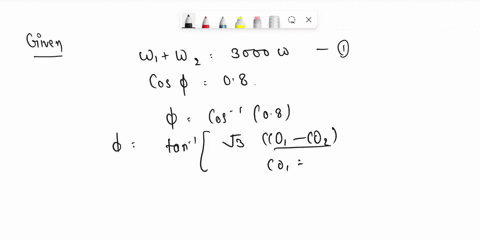 Given
ω₁ + ω₂ = 3000 ω — ①
Cos ϕ = 0.8.
ϕ = Cos⁻¹ (0.8)
ϕ = tan⁻¹ [ √3 (ω₁ - ω₂)
ω₁ =